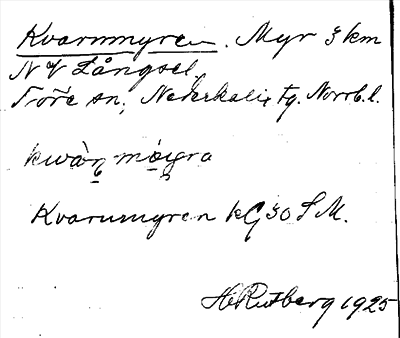 Kvarnmyren. Myr 3 km
NV Långsel,
Töre sn, Nederkalix tg. Norrb. l.
Kvarnmyren kG 30 S M.
H Rutberg 1925